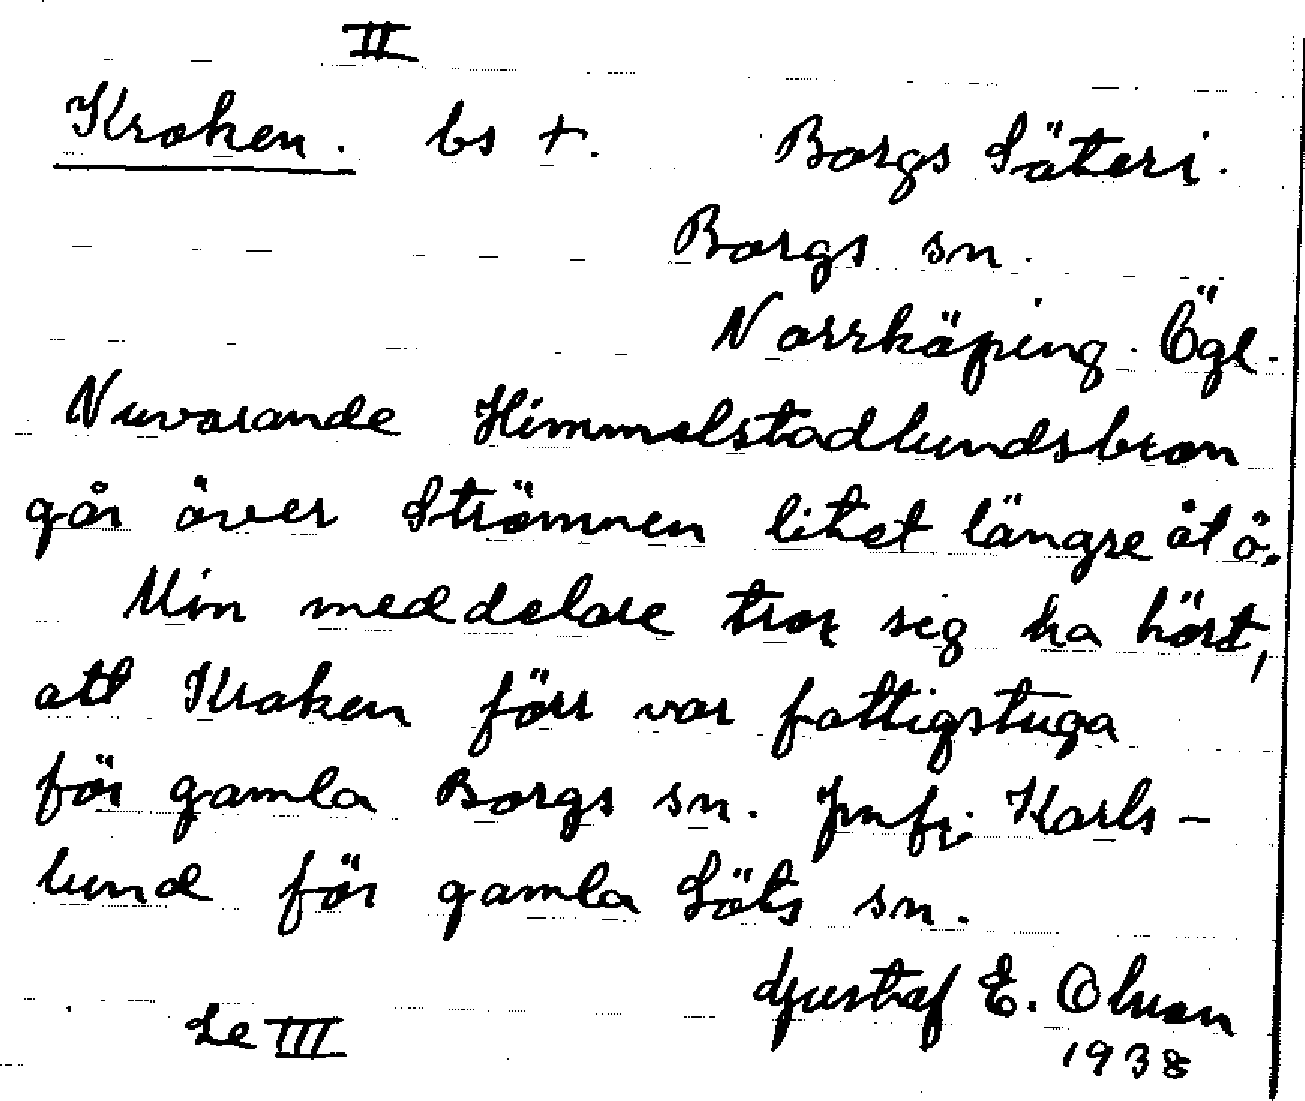 II
Kraken. bs +. Borgs Säteri.
Borgs sn.
Norrköping. Ögl.
Nuvarande Himmelstadlundsbron
går över Strömmen litet längre åt ö.
Min meddelare tror sig ha hört,
att Kraken förr var fattigstuga
för gamla Borgs sn. Jmfr. Karls-
lund för gamla Löts sn.
Gustaf E. Olsson
1938
Se III